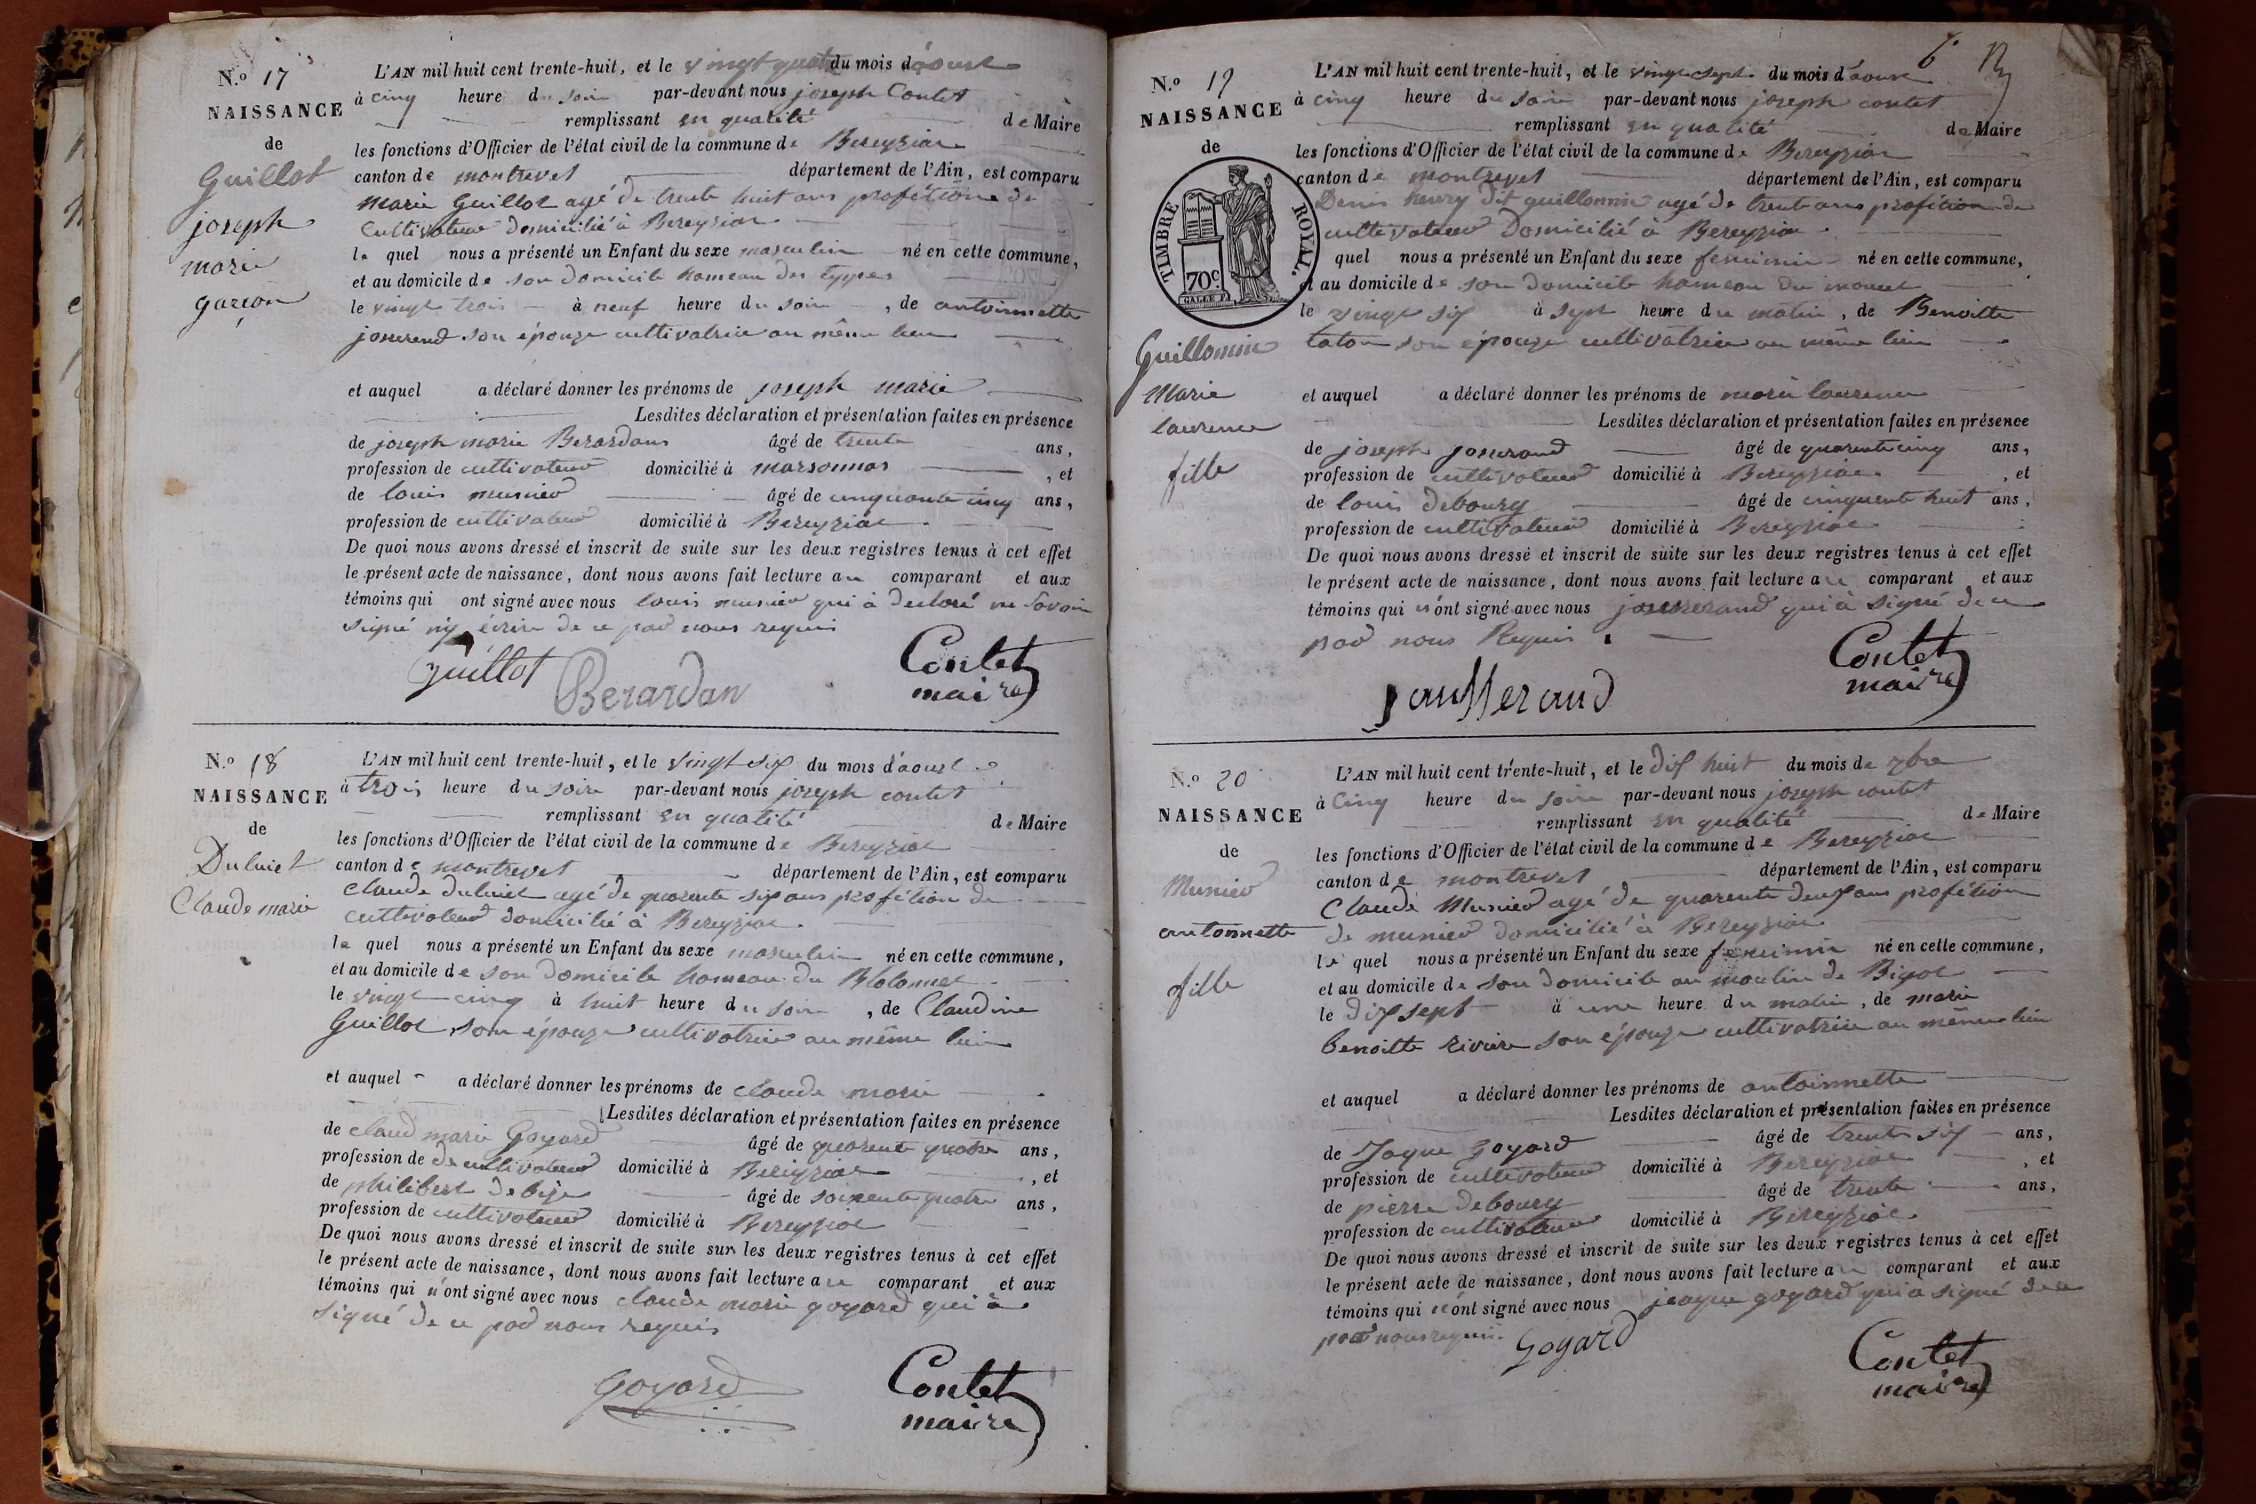 N.o 17
NAISSANCE
de
Guillot
joseph
marie
garçon
L'AN mil huit cent trente-huit, et le vingt quatre du mois d'aoust
à cinq heure du soir par-devant nous joseph Contet
remplissant en qualité de Maire
les fonctions d'Officier de l'état civil de la commune de Bereyziat
canton de montrevel département de l'Ain, est comparu
marie Guillot agé de trente huit ans profétion de
cultivateur domicilié à Bereyziat
le quel nous a présenté un Enfant du sexe masculin né en cette commune,
et au domicile de son domicile hameau des
le vingt trois à neuf heure du soir, de antoinnette
joserend son épouze cultivatrice au même lieu
et auquel a déclaré donner les prénoms de joseph marie
Lesdites déclaration et présentation faites en présence
de joseph marie Berardan âgé de trente ans,
profession de cultivateur domicilié à marsonnas, et
de louis munier âgé de cinquante cinq ans,
profession de cultivateur domicilié à Bereyziat
De quoi nous avons dressé et inscrit de suite sur les deux registres tenus à cet effet
le présent acte de naissance, dont nous avons fait lecture au comparant et aux
témoins qui ont signé avec nous louis munier qui à declaré ne savoir
signé ny écrire de ce par nous requis
Guillot Berardan Contet
maire
N.o 18
NAISSANCE
de
Duluiet
Claude marie
L'AN mil huit cent trente-huit, et le vingt six du mois d'aoust
à trois heure du soir par-devant nous joseph contet
remplissant en qualité de Maire
les fonctions d'Officier de l'état civil de la commune de Bereyziat
canton de montrevel département de l'Ain, est comparu
Claude duluiet agé de quarente six ans profétion de
cultivateur domicilié à Bereyziat
le quel nous a présenté un Enfant du sexe masculin né en cette commune,
et au domicile de son domicile hameau du
le vingt cinq à huit heure du soir, de Claudine
Guillot son épouze cultivatrice au même lieu
et auquel a déclaré donner les prénoms de claude marie
Lesdites déclaration et présentation faites en présence
de claud marie Goyard âgé de quarente quatre ans,
profession de de cultivateur domicilié à Bereyziat, et
de philibert âgé de soixente quatre ans,
profession de cultivateur domicilié à Bereyziat
De quoi nous avons dressé et inscrit de suite sur les deux registres tenus à cet effet
le présent acte de naissance, dont nous avons fait lecture au comparant et aux
témoins qui n'ont signé avec nous claude marie goyard qui à
signé de ce par nous requis
Goyard Contet
maire
6
N.o 19
NAISSANCE
de
TIMBRE ROYAL.
70c.
Guillomin
Marie
laurence
fille
L'AN mil huit cent trente-huit, et le vingt sept du mois d'aoust
à cinq heure du soir par-devant nous joseph contet
remplissant en qualité de Maire
les fonctions d'Officier de l'état civil de la commune de Bereyziat
canton de montrevel département de l'Ain, est comparu
Denis henry dit guillomin agé de trente ans profétion de
cultivateur Domicilié à Bereyziat
quel nous a présenté un Enfant du sexe feminin né en cette commune,
et au domicile de son domicile hameau du
le vingt six à sept heure du matin, de Benoitte
taton son épouze cultivatrice au même lieu
et auquel a déclaré donner les prénoms de marie laurence
Lesdites déclaration et présentation faites en présence
de joseph joserand âgé de quarente cinq ans,
profession de cultivateur domicilié à Bereyziat, et
de louis debourg âgé de cinquente huit ans,
profession de cultivateur domicilié à Bereyziat
De quoi nous avons dressé et inscrit de suite sur les deux registres tenus à cet effet
le présent acte de naissance, dont nous avons fait lecture au comparant et aux
témoins qui n'ont signé avec nous jousserand qui à signé de ce
par nous Requis.
jausserand Contet
maire
N.o 20
NAISSANCE
de
Munier
antonnette
fille
L'AN mil huit cent trente-huit, et le dix huit du mois de 7bre
à Cinq heure du soir par-devant nous joseph contet
remplissant en qualité de Maire
les fonctions d'Officier de l'état civil de la commune de Bereyziat
canton de montrevel département de l'Ain, est comparu
Claude Munier agé de quarente deux ans profétion
de munier domicilié à Bereyziat
le quel nous a présenté un Enfant du sexe feminin né en cette commune,
et au domicile de son domicile au moulin de Bigot
le dix sept à une heure du matin, de marie
benoitte riviere son épouze cultivatrice au même lieu
et auquel a déclaré donner les prénoms de antoinnette
Lesdites déclaration et présentation faites en présence
de Jaque Goyard âgé de trente six ans,
profession de cultivateur domicilié à Bereyziat, et
de pierre debourg âgé de trente ans,
profession de cultivateur domicilié à Bereyziat
De quoi nous avons dressé et inscrit de suite sur les deux registres tenus à cet effet
le présent acte de naissance, dont nous avons fait lecture au comparant et aux
témoins qui n'ont signé avec nous jeaque goyard qui a signé de ce
par nous requis. Goyard
Contet
maire